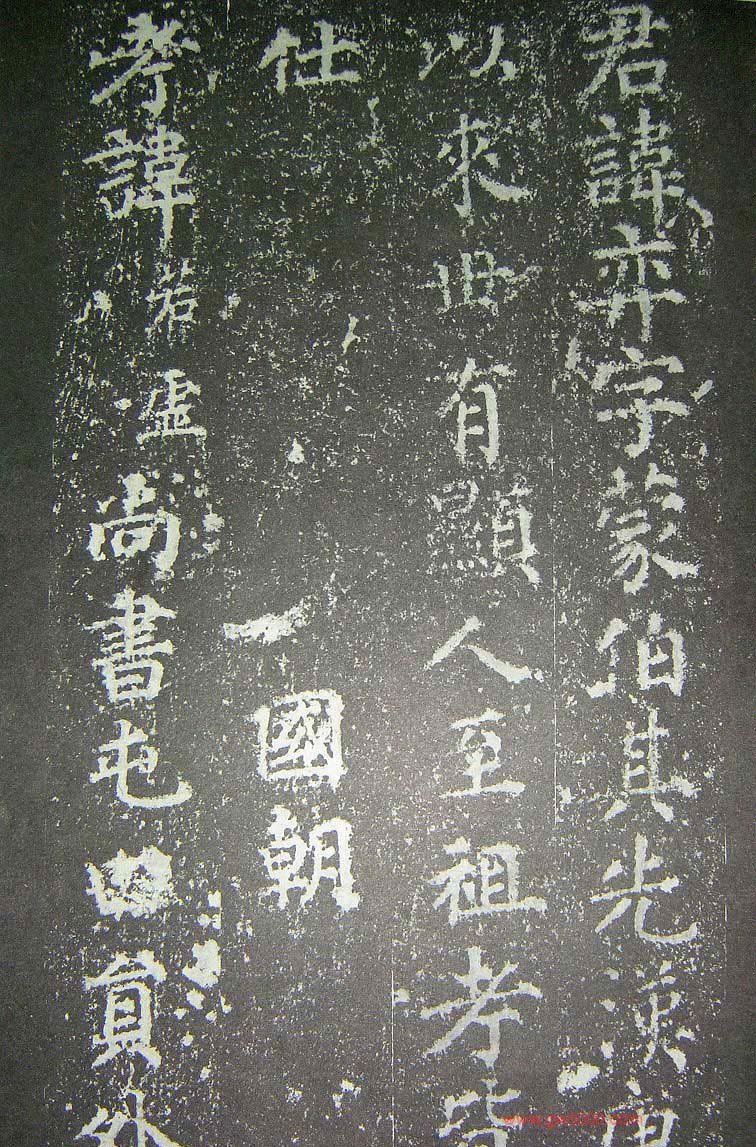 君諱弈字蒙伯其先漢
以來世有顯人至祖考皆
仕 國朝
考諱若虛尚書屯田員外